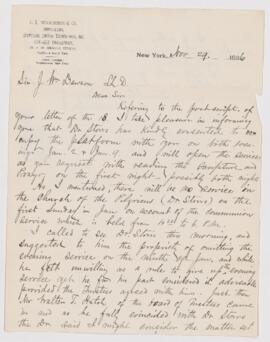 IMPORTERS,
New York, Nov 29 1886
Sir J. Wm Dawson LL.D
Dear Sir
Referring to the postscript of
your letter of the I take pleasure in informing
you that Dr Storrs has kindly consented to
occupy the platform with you on both
Jan. 2 & Jan 9 and will open the services
as you suggest with reading the Scripture and
Prayer on the first night – possibly both nights
As I mentioned, there will be no service in
the Church of the Pilgrims (Dr Storrs) on the
first Sunday in Jan on account of the communion
service which is held from to 6 P.M.
I called to see Dr Storrs this morning, and
suggested to him the propriety of omitting the
evening service on the ninth of Jan, and while
he felt unwilling as a rule to give up evening
service yet he for his part considered it advisable
provided the Trustees agreed with him. Just then
Mr Walter T. Hatch of the board of Trustees came
in and as he fully coincided with Dr Storrs
the Dr. said I might consider the matter set